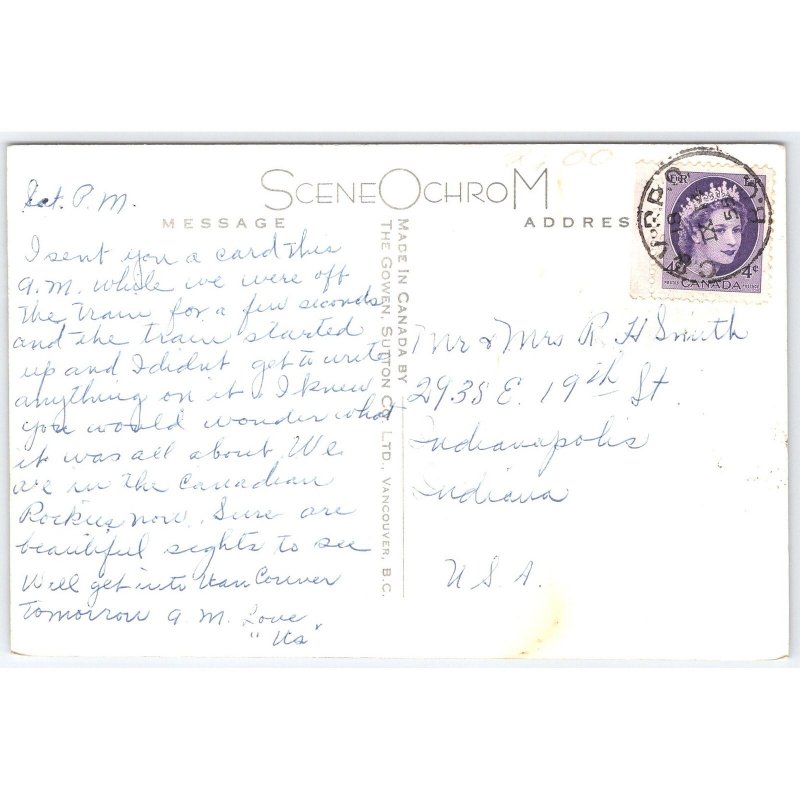 SCENEOCHROM
MESSAGE
ADDRES
Sat. P.M.
I sent you a card this
a.m. while we were off
the train for a few seconds
and the train started
up and I didnt get to write
anything on it. I knew
you would wonder what
it was all about. We
are in the Canadian
Rockies now. Sure are
beautiful sights to see
Will get into VanCouver
Tomorrow a.m. Love
"Us"
MADE IN CANADA BY
THE GOWEN, SUTTON CO. LTD., VANCOUVER, B.C.
Mr & Mrs R H Smith
2938 E. 19th St.
Indianapolis
Indiana
U.S.A.
4¢
CANADA